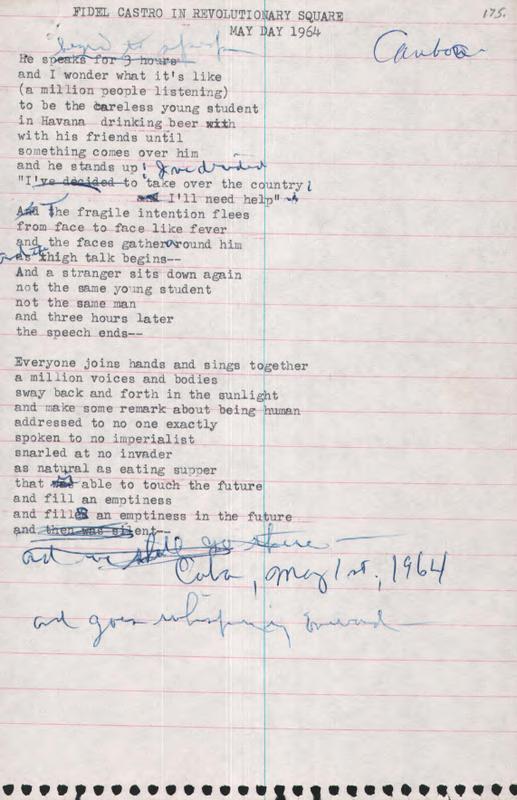 FIDEL CASTRO IN REVOLUTIONARY SQUARE
175.
MAY DAY 1964
begin to speak
He speaks for 3 hours
and I wonder what it's like
(a million people listening)
to be the careless young student
in Havana drinking beer with
with his friends until
something comes over him
and he stands up: I've decided
"I've decided to take over the country
and I'll need help"
And the fragile intention flees
from face to face like fever
and the faces gather around him
as thigh talk begins--
And a stranger sits down again
not the same young student
not the same man
and three hours later
the speech ends--
Everyone joins hands and sings together
a million voices and bodies
sway back and forth in the sunlight
and make some remark about being human
addressed to no one exactly
spoken to no imperialist
snarled at no invader
as natural as eating supper
that was able to touch the future
and fill an emptiness
and fills an emptiness in the future
and then was silent--
and we shall go there —
Cuba, May 1st, 1964
and goes whispering onward —